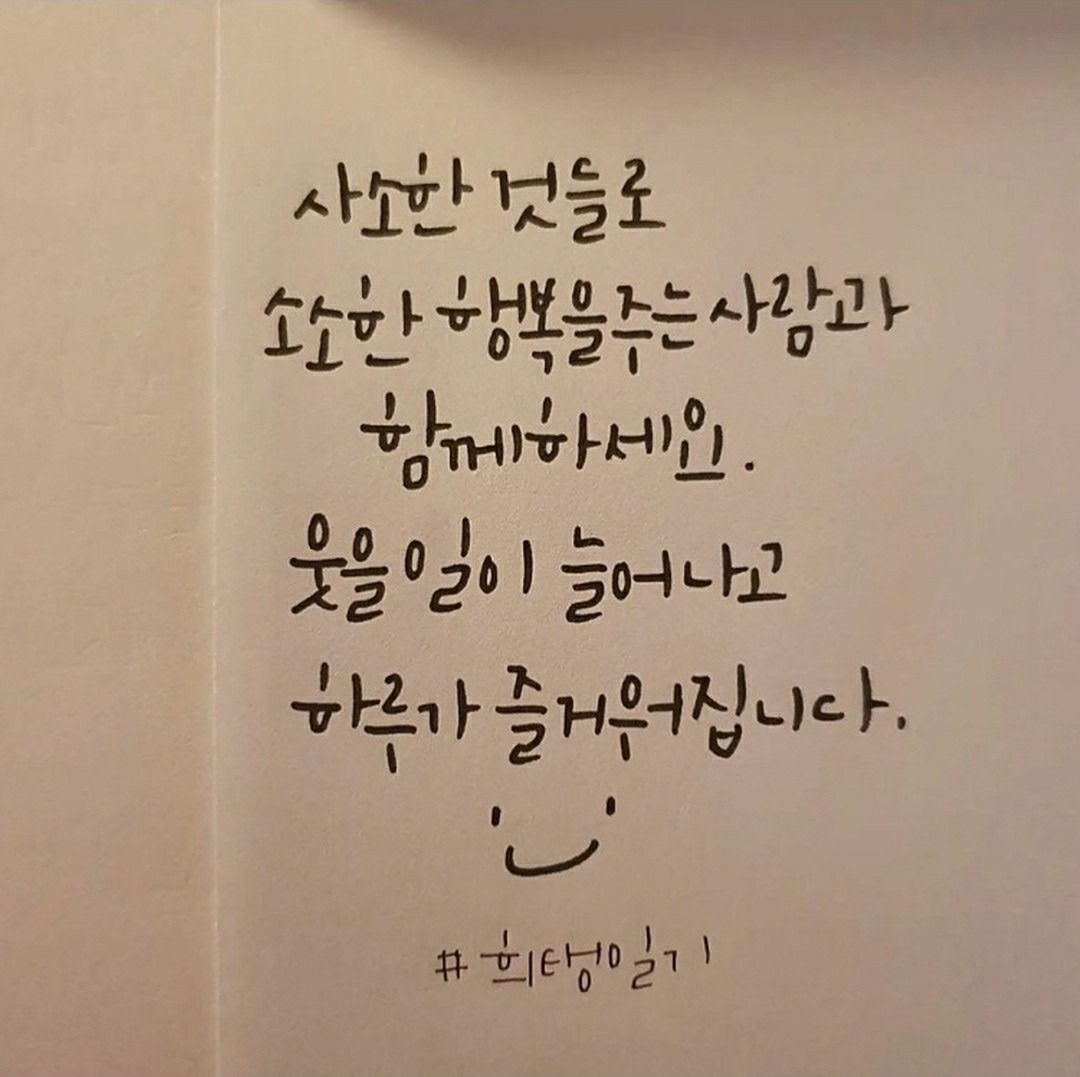 사소한 것들로
소소한 행복을 주는 사람과
함께하세요.
웃을 일이 늘어나고
하루가 즐거워집니다.
#희탱일기